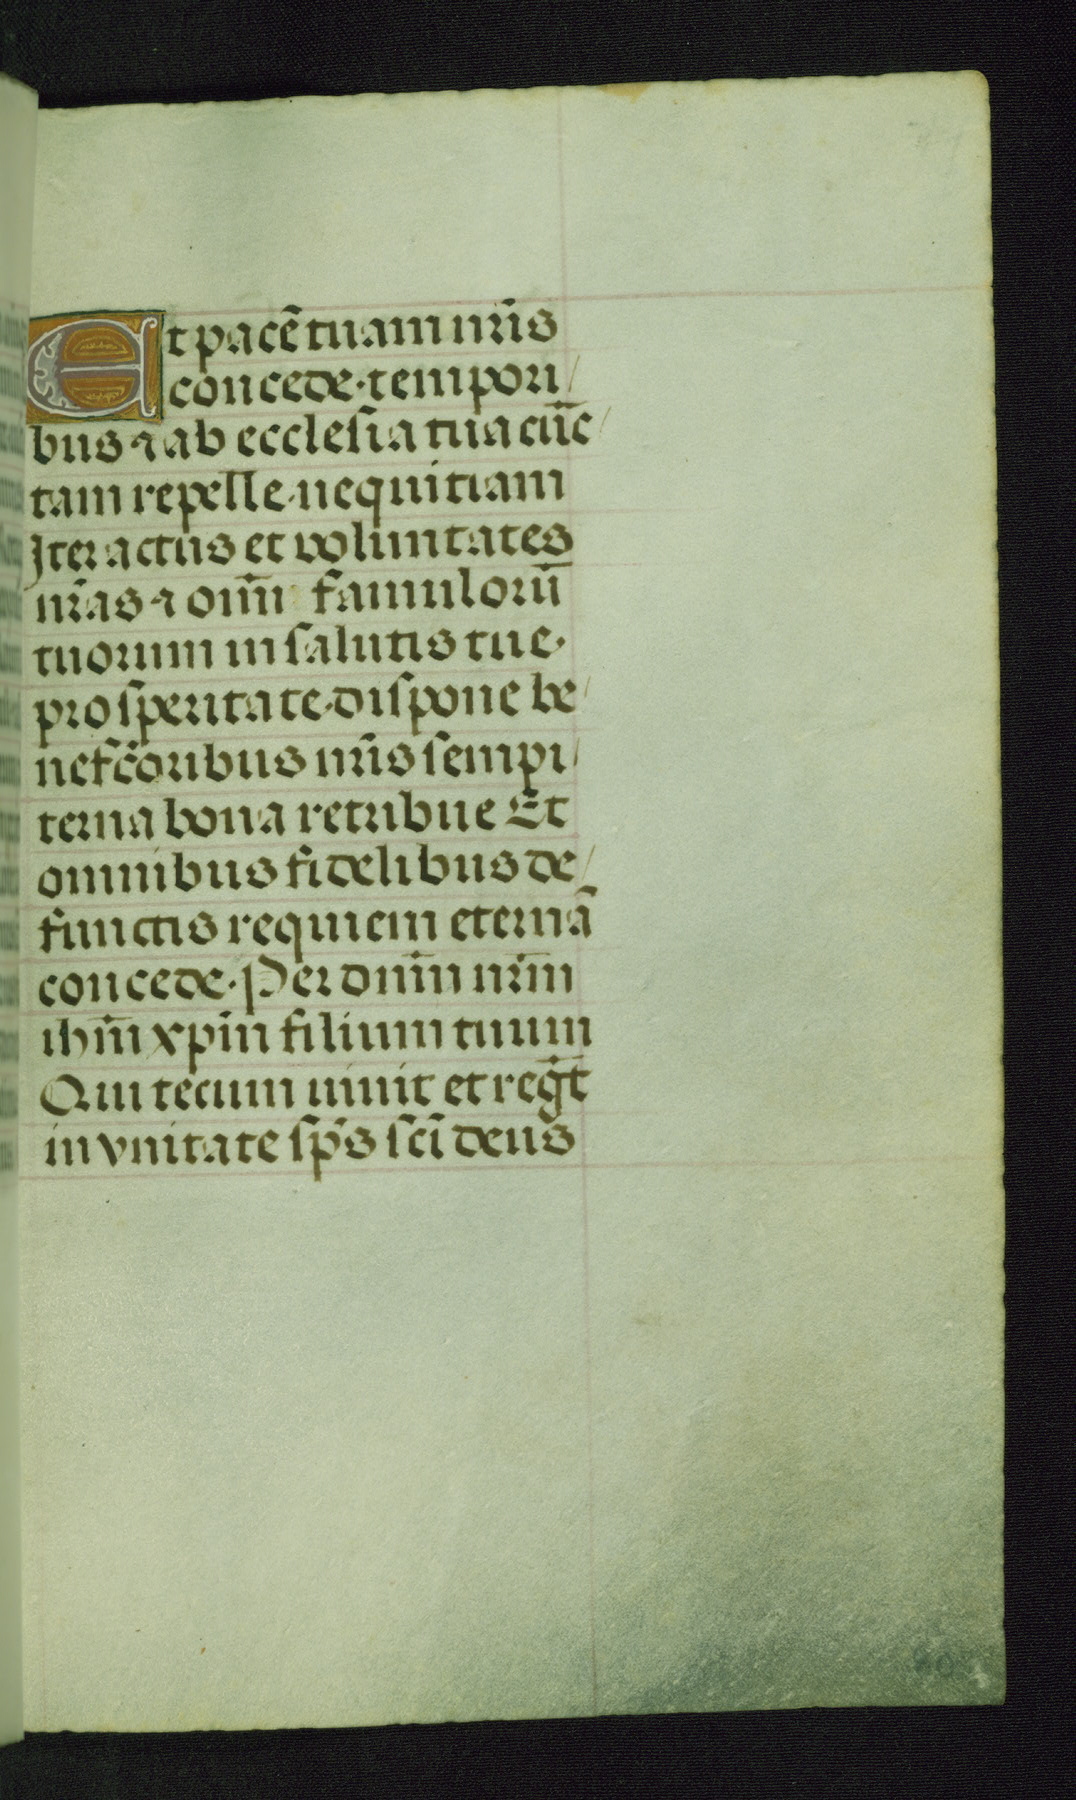 Et pacẽ tuam nr̃is
concede·tempori/
bus ⁊ ab ecclesia tua cũc/
tam repelle·nequitiam
Iter actus et voluntates
nr̃as ⁊ om̃i famulorũ
tuorum in salutis tue·
prosperitate·dispone be/
nefc̃oribus nr̃is sempi/
terna bona retribue Et
omnibus fidelibus de/
functis requiem eternã
concede·Per dnm̃ nr̃m
ihm̃ xpm̃ filium tuum
Qui tecum uiuit et reg̃t
in vnitate sp̃s sc̃i deus